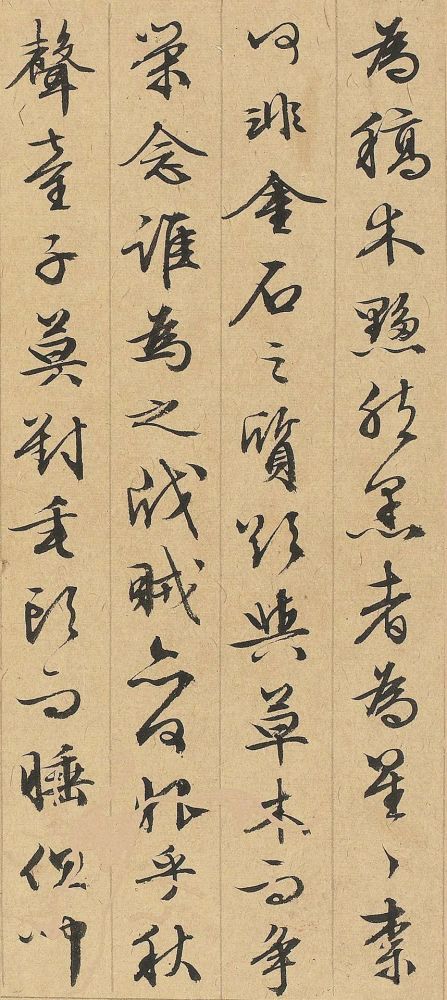 為稿木黟然黑者為星〻柰
何非金石之質欲與草木而争
榮念誰為之戕賊亦何恨乎秋
聲童子莫對垂頭而睡但聞